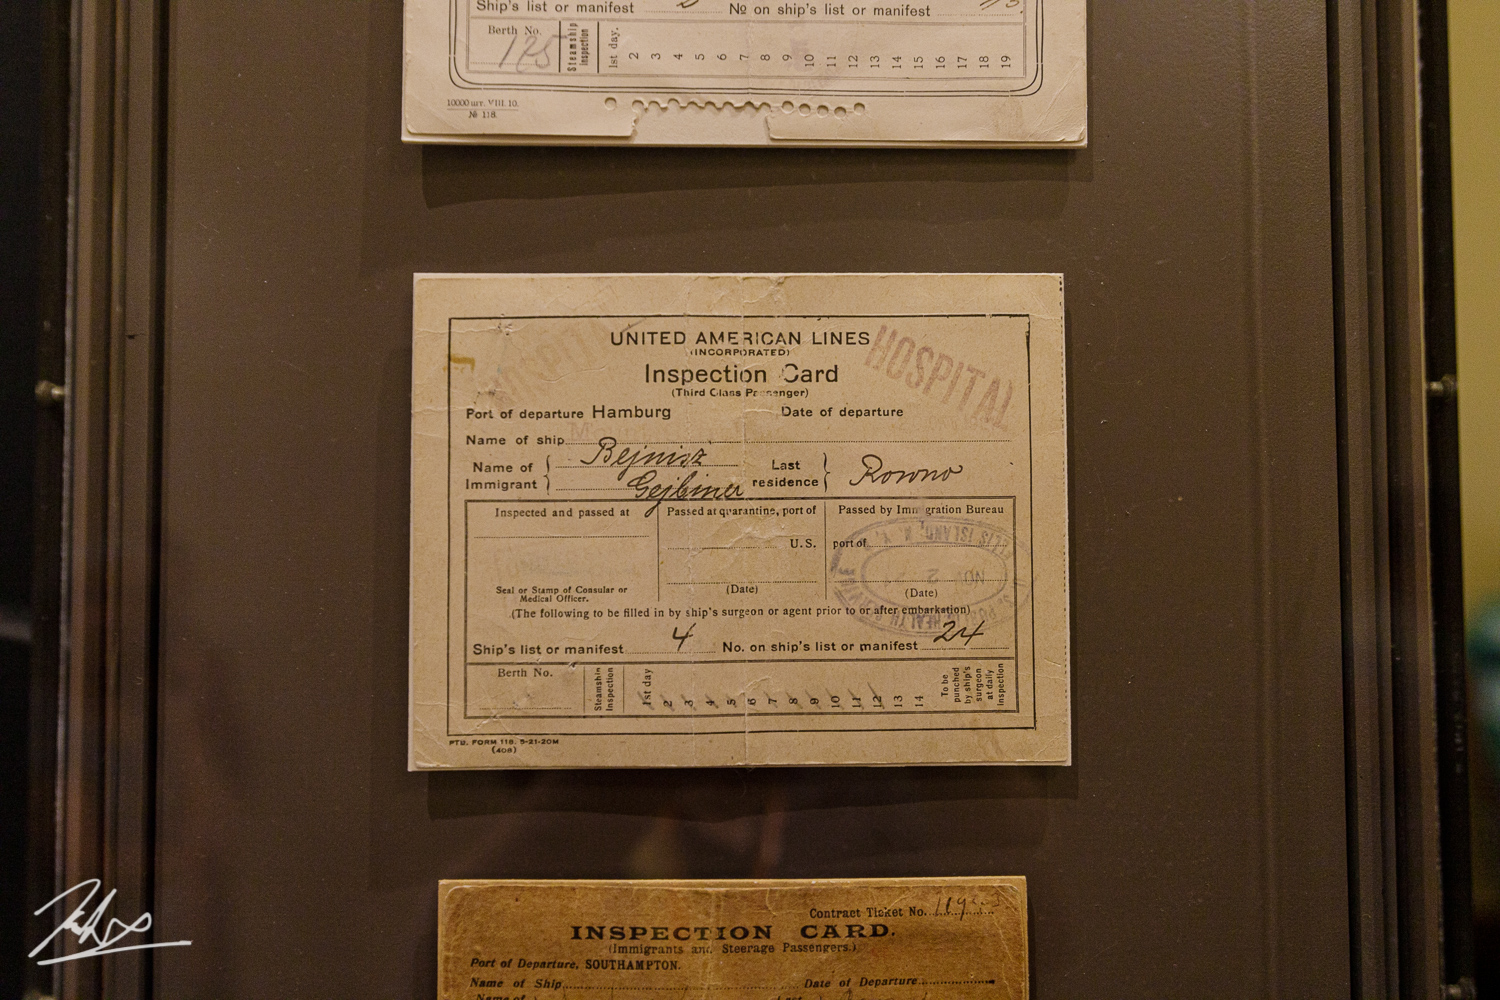 Ship's list or manifest № on ship's list or manifest
Berth No. 175 Steamship Inspection 1st day. 2 3 4 5 6 7 8 9 10 11 12 13 14 15 16 17 18 19
10000 шт. VIII. 10.
№ 118.
UNITED AMERICAN LINES
(INCORPORATED)
HOSPITAL
HOSPITAL
Inspection Card
(Third Class Passenger)
Port of departure Hamburg Date of departure
Name of ship
Name of Immigrant Bejnisz Gejbiner Last residence Rowno
Inspected and passed at
Seal or Stamp of Consular or
Medical Officer.
Passed at quarantine, port of
U.S.
(Date)
Passed by Immigration Bureau
port of
(Date)
ELLIS ISLAND, N. Y.
PUBLIC HEALTH SERVICE
(The following to be filled in by ship's surgeon or agent prior to or after embarkation)
Ship's list or manifest 4 No. on ship's list or manifest 24
Berth No. Steamship Inspection 1st day 2 3 4 5 6 7 8 9 10 11 12 13 14 To be punched by ship's surgeon at daily inspection
PTD. FORM 118. 5-21-20M
(408)
Contract Ticket No.
INSPECTION CARD.
(Immigrants and Steerage Passengers.)
Port of Departure, SOUTHAMPTON.
Name of Ship Date of Departure
Name of